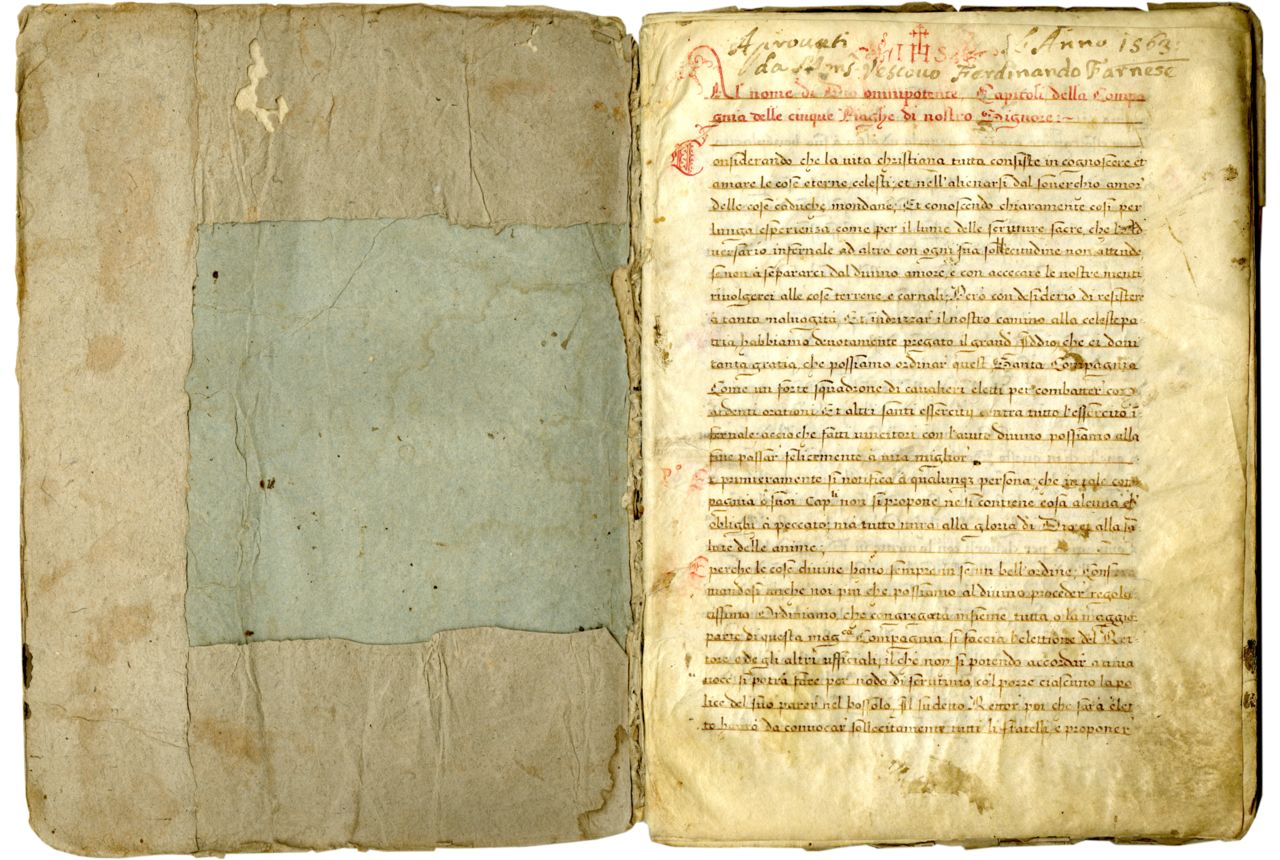 Aprovati IHS L'Anno 1563:
da Mons Vescovo Ferdinando Farnese
Al nome di Dio omnipotente, Capitoli della Compa
gnia delle cinque Piaghe di nostro Signore:~
Considerando che la vita christiana tutta consiste in cognoscere et
amare le cose eterne celesti, et nell'alienarsi dal souerchio amor'
delle cose caduche mondane; Et conoscendo chiaramente cosi per
lunga esperienza come per il lume delle scritture sacre, che l'Ad
uersario infernale ad altro con ogni sua sollecitudine non attende
se non à separarci dal diuino amore, e con accecare le nostre menti
riuolgerci alle cose terrene e carnali; Però con desiderio di resistere
à tanta maluagità, Et indrizzar il nostro camino alla celeste pa
tria habbiamo deuotamente pregato il grand' Iddio che ci doni
tanta gratia, che possiamo ordinar quest Santa Compagnia
Come un forte squadrone di caualieri eletti per combatter con
ardenti orationi, Et altri santi essercitij contra tutto l'essercito i
fernale accio che fatti uincitori con l'aiuto diuino possiamo alla
fine passar felicemente à uita miglior
Pº E primieramente si notifica à qualunq; persona, che in tale com
pagnia ò suoi Cap.li non si propone ne si contiene cosa alcuna ch'
oblighi à peccato; mà tutto mira alla gloria di Dio et alla sa
lute delle anime;
E perche le cose diuine hano sempre in se un bell'ordine; Confor
mandosi anche noi più che possiamo al diuino proceder regola
tissimo Ordiniamo, che congregata insieme tutta o la maggior
parte di questa mag.ca Compagnia si faccia l'elettione del Ret
tore, e de gli altri ufficiali, il che non si potendo accordar a uiua
uoce si potrà fare per modo di scrutinio, co'l porre ciascuno la po
lice del suo parer nel bossolo, Il sudetto Rettor poi che sarà elet
to hauerà da conuocar sollecitamente tutti li fratelli e proponer